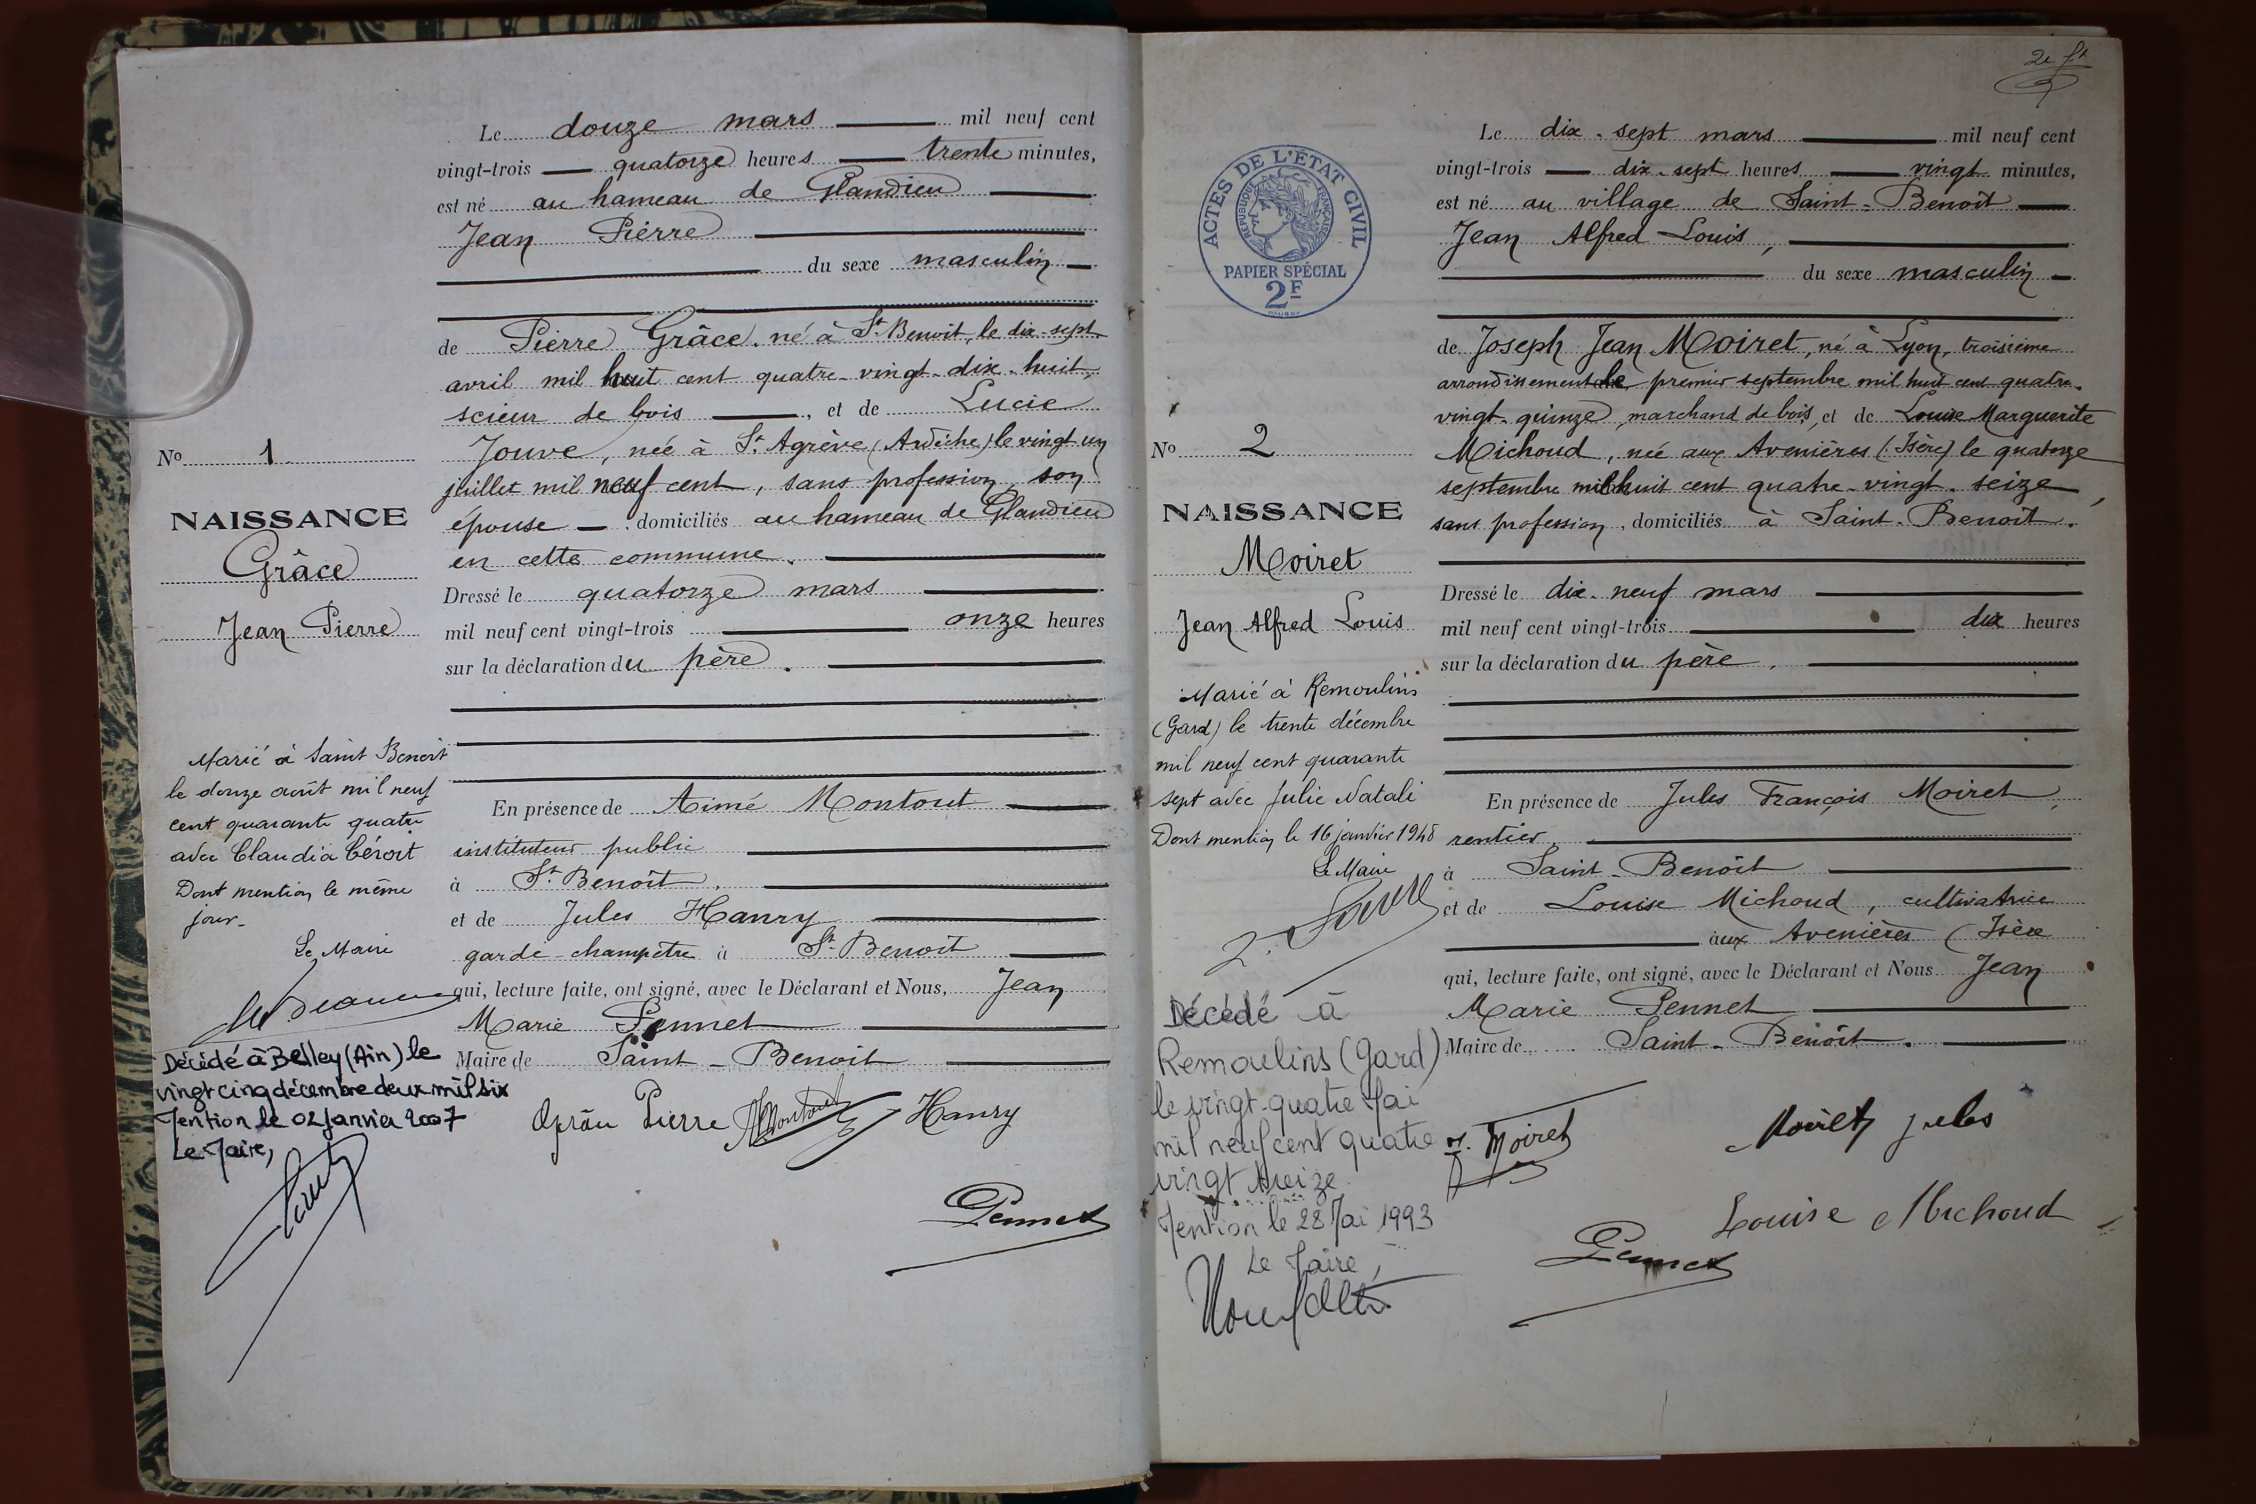 Le douze mars mil neuf cent
vingt-trois quatorze heures trente minutes,
est né au hameau de Glandieu
Jean Pierre
du sexe masculin
de Pierre Grâce, né à St Benoit, le dix-sept
avril mil huit cent quatre-vingt-dix-huit,
scieur de bois, et de Lucie
Jouve, née à St Agrève (Ardèche) le vingt un
juillet mil neuf cent, sans profession, son
épouse domiciliés au hameau de Glandieu
en cette commune.
Dressé le quatorze mars
mil neuf cent vingt-trois onze heures
sur la déclaration du père.
En présence de Aimé Montout
instituteur public
à St Benoît,
et de Jules Hanry
garde-champêtre à St Benoit
qui, lecture faite, ont signé, avec le Déclarant et Nous, Jean
Marie Pennet
Maire de Saint-Benoit
Pierre Hanry
Pennet
No 1
NAISSANCE
Grâce
Jean Pierre
Marié à Saint Benoit
le douze août mil neuf
cent quarante quatre
avec Claudia
Dont mention le même
jour-
Le Maire
Décédé à Belley (Ain) le
vingt cinq décembre deux mil six
Mention le 02 Janvier 2007
Le Maire,
ACTES DE L'ÉTAT CIVIL
RÉPUBLIQUE FRANÇAISE
PAPIER SPÉCIAL
2F
Le dix-sept mars mil neuf cent
vingt-trois dix-sept heures vingt minutes,
est né au village de Saint-Benoît
Jean Alfred Louis,
du sexe masculin
de Joseph Jean Moiret, né à Lyon, troisième
arrondissement le premier septembre mil huit cent quatre-
vingt-quinze, marchand de bois, et de Louise Marguerite
Michoud, née aux Avenières (Isère) le quatorze
septembre mil huit cent quatre-vingt-seize,
sans profession, domiciliés à Saint-Benoît.
Dressé le dix-neuf mars
mil neuf cent vingt-trois dix heures
sur la déclaration du père.
En présence de Jules François Moiret,
rentier,
à Saint-Benoît
et de Louise Michoud, cultivatrice
aux Avenières (Isère
qui, lecture faite, ont signé, avec le Déclarant et Nous Jean
Marie Pennet
Maire de Saint-Benoît.
J. Moiret
Moiret jules
Louise Michoud
Pennet
No 2
NAISSANCE
Moiret
Jean Alfred Louis
Marié à Remoulins
(Gard) le trente décembre
mil neuf cent quarante
sept avec Julie Natali
Dont mention le 16 janvier 1948
Le Maire
Décédé à
Remoulins (Gard)
le vingt-quatre Mai
mil neuf cent quatre
vingt treize
Mention le 28 Mai 1993
Le Maire,